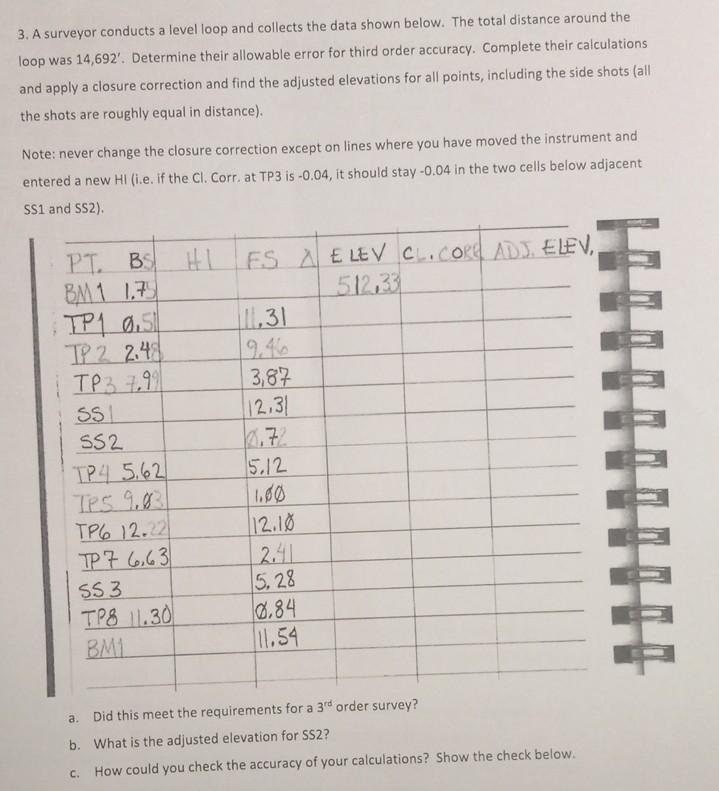 3. A surveyor conducts a level loop and collects the data shown below. The total distance around the
loop was 14,692'. Determine their allowable error for third order accuracy. Complete their calculations
and apply a closure correction and find the adjusted elevations for all points, including the side shots (all
the shots are roughly equal in distance).
Note: never change the closure correction except on lines where you have moved the instrument and
entered a new HI (i.e. if the Cl. Corr. at TP3 is -0.04, it should stay -0.04 in the two cells below adjacent
SS1 and SS2).
PT. BS HI FS Δ ELEV CL.CORR ADJ. ELEV,
BM1 1.75 512.33
TP1 0.51 11.31
TP2 2.48 9.46
TP3 7.99 3,87
SS1 12.31
SS2 0.72
TP4 5.62 5.12
TP5 9.03 1.00
TP6 12.22 12.10
TP7 6.63 2.41
SS3 5.28
TP8 11.30 0.84
BM1 11.54
a. Did this meet the requirements for a 3rd order survey?
b. What is the adjusted elevation for SS2?
c. How could you check the accuracy of your calculations? Show the check below.